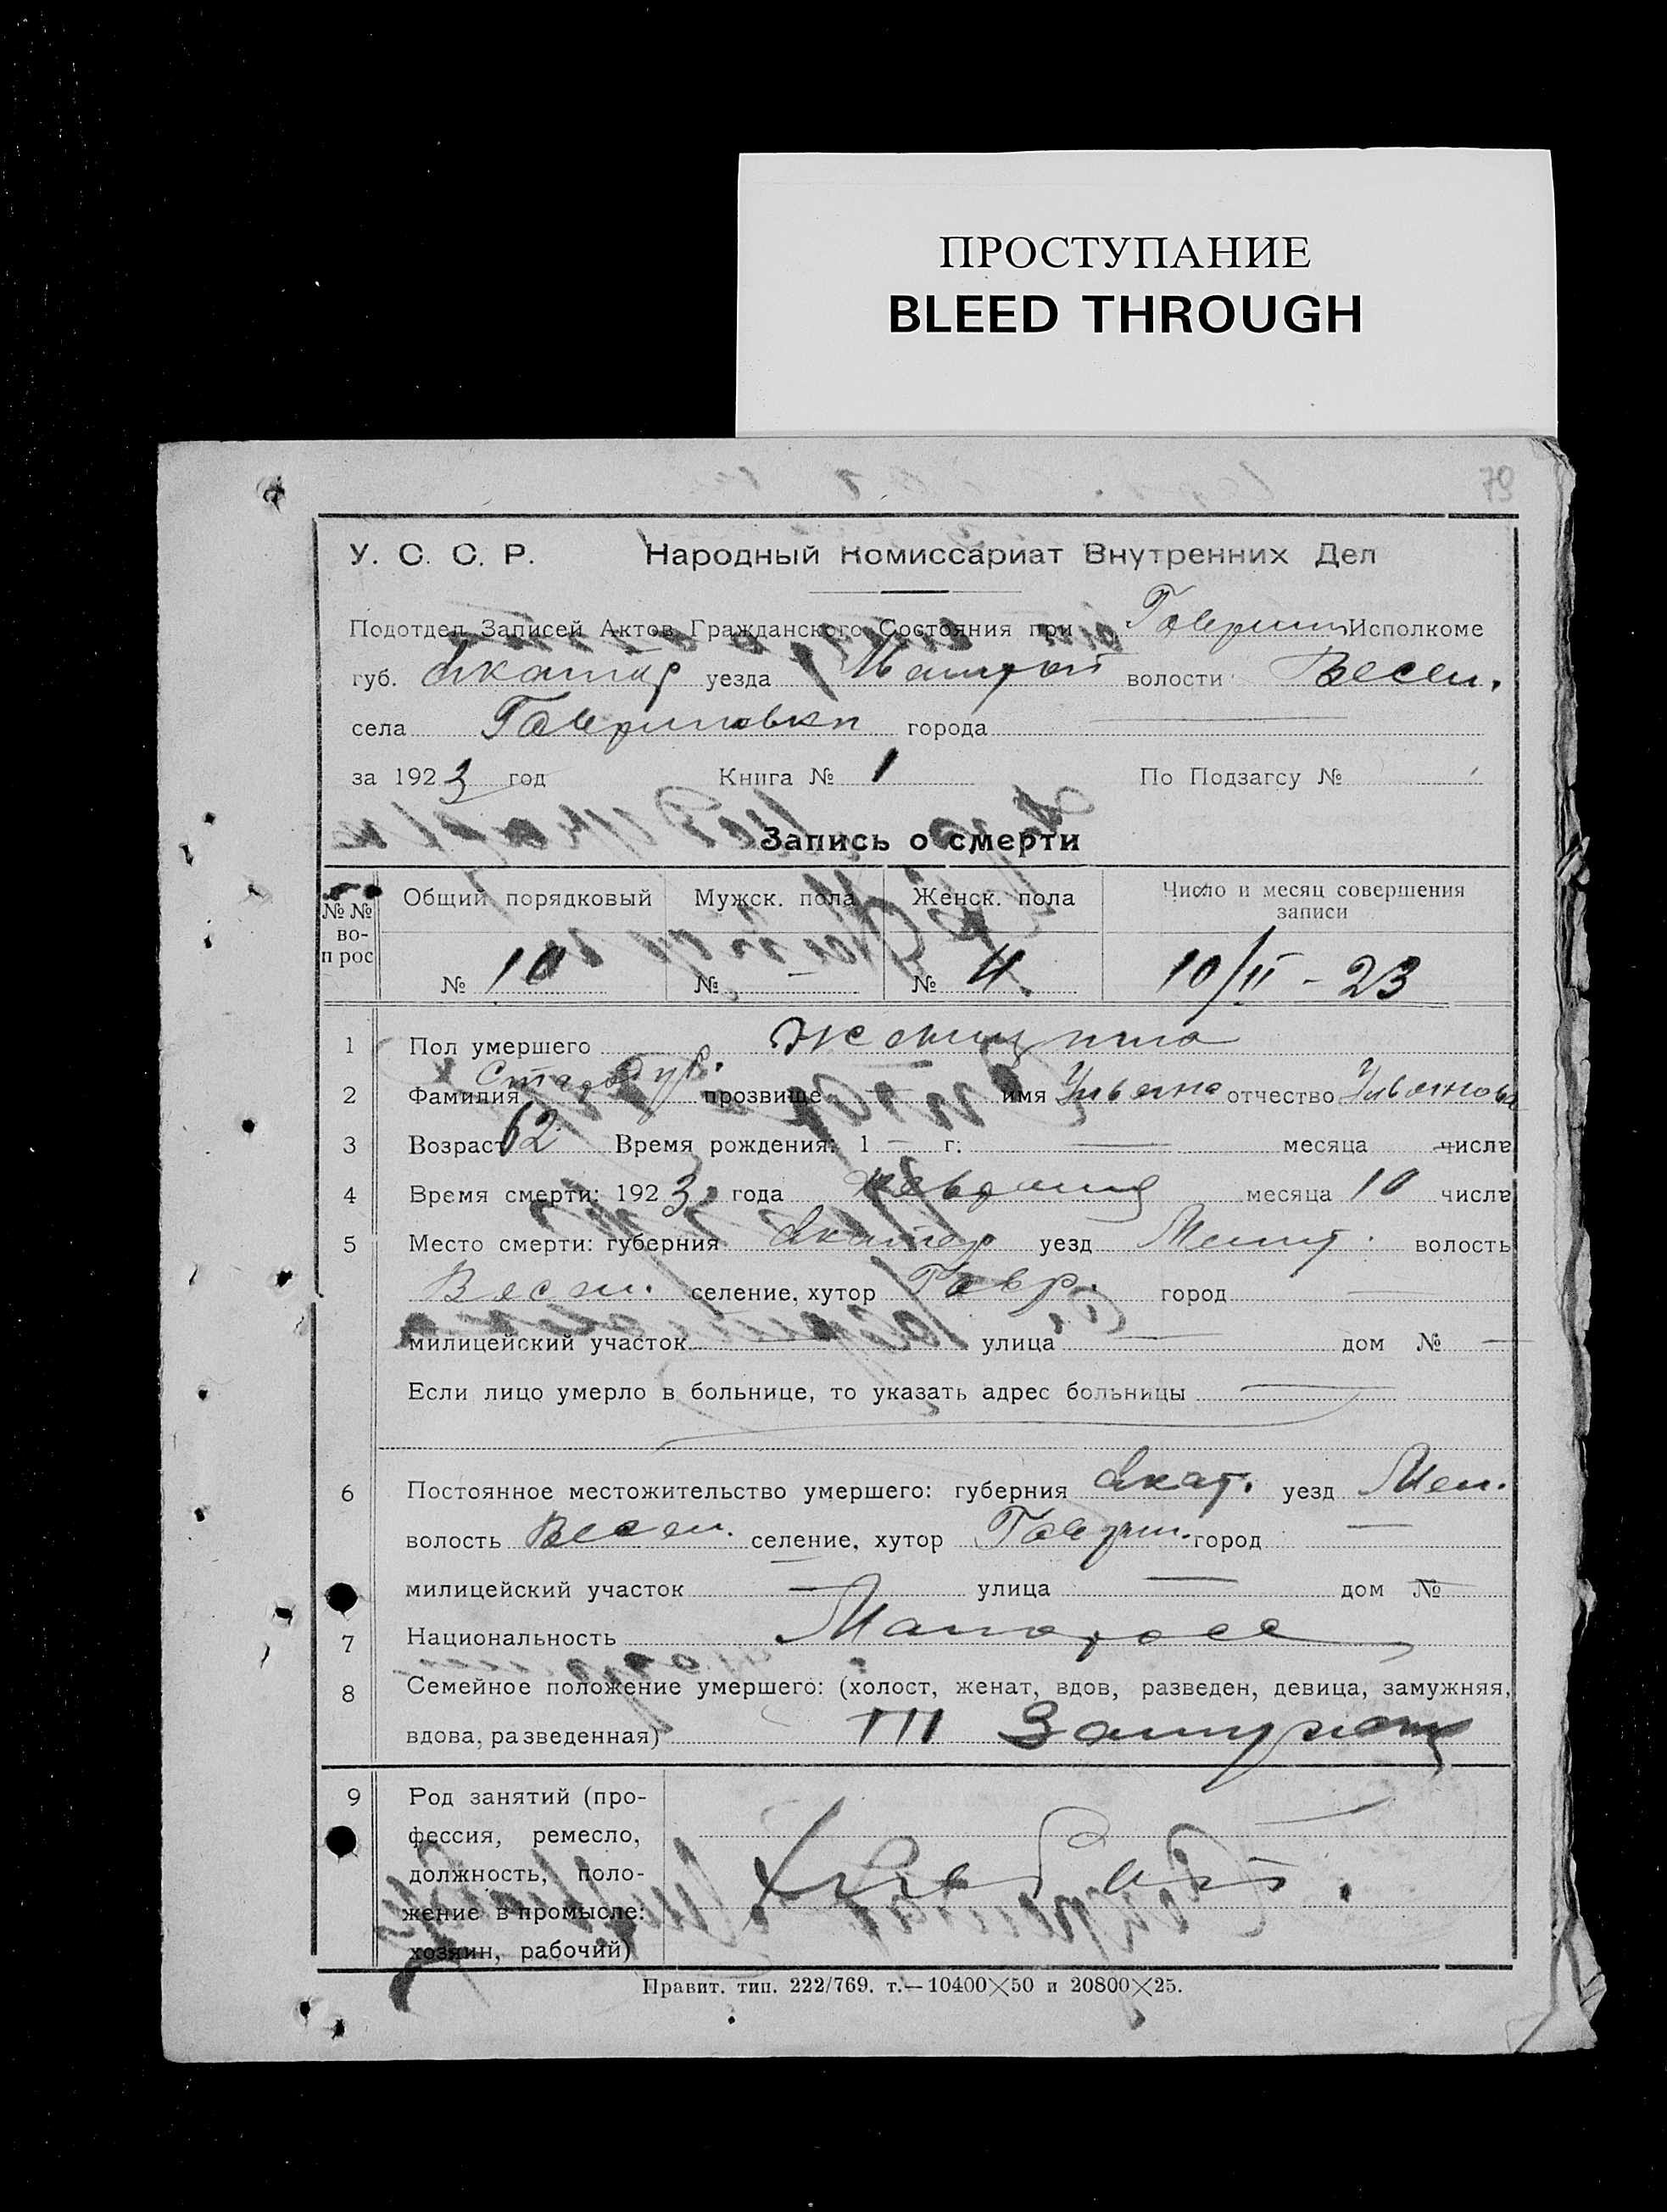 ПРОСТУПАНИЕ
BLEED THROUGH
79
У. С. С. Р. Народный Комиссариат Внутренних Дел
Подотдел Записей Актов Гражданского Состояния при Исполкоме
губ. Екатер уезда волости Весел.
села Гавриловки города —
за 1923 год Книга № 1 По Подзагсу №
Запись о смерти
№№ во-прос
Общий порядковый Мужск. пола Женск. пола Число и месяц совершения записи
№ 10 № — № 4 10/II - 23
1 Пол умершего женщина
2 Фамилия Стародуб. прозвище — имя Ульяна отчество
3 Возраст 62 Время рождения: 1 — г. — месяца числа
4 Время смерти: 1923 года февраля месяца 10 числа
5 Место смерти: губерния Екатер уезд волость
Весел. селение, хутор Гавр. город —
милицейский участок — улица — дом № —
Если лицо умерло в больнице, то указать адрес больницы —
6 Постоянное местожительство умершего: губерния Екат. уезд Мел.
волость Весел. селение, хутор Гаврил. город —
милицейский участок — улица — дом № —
7 Национальность Малоросс
8 Семейное положение умершего: (холост, женат, вдов, разведен, девица, замужняя,
вдова, разведенная) III Замужняя
9 Род занятий (про-
фессия, ремесло,
должность, поло-
жение в промысле:
хозяин, рабочий)
Хлебоп.
Правит. тип. 222/769. т.—10400×50 и 20800×25.